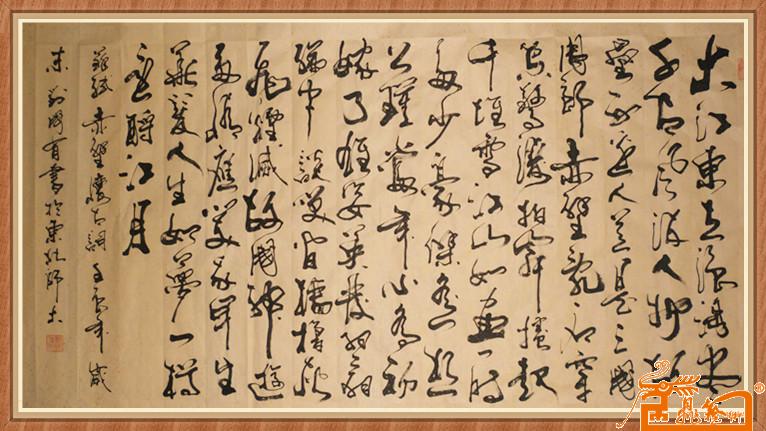 大江東去浪淘盡
千古風流人物故
壘西邊人道是三國
周郎赤壁亂石穿
空驚濤拍岸捲起
千堆雪江山如畫一時
多少豪傑遙想
公瑾當年小喬初
嫁了雄姿英發羽扇
綸巾談笑間檣櫓灰
飛煙滅故國神遊
多情應笑我早生
華髮人生如夢一樽
還酹江月
蘇軾赤壁懷古詞 年歲
末 書於東北師大